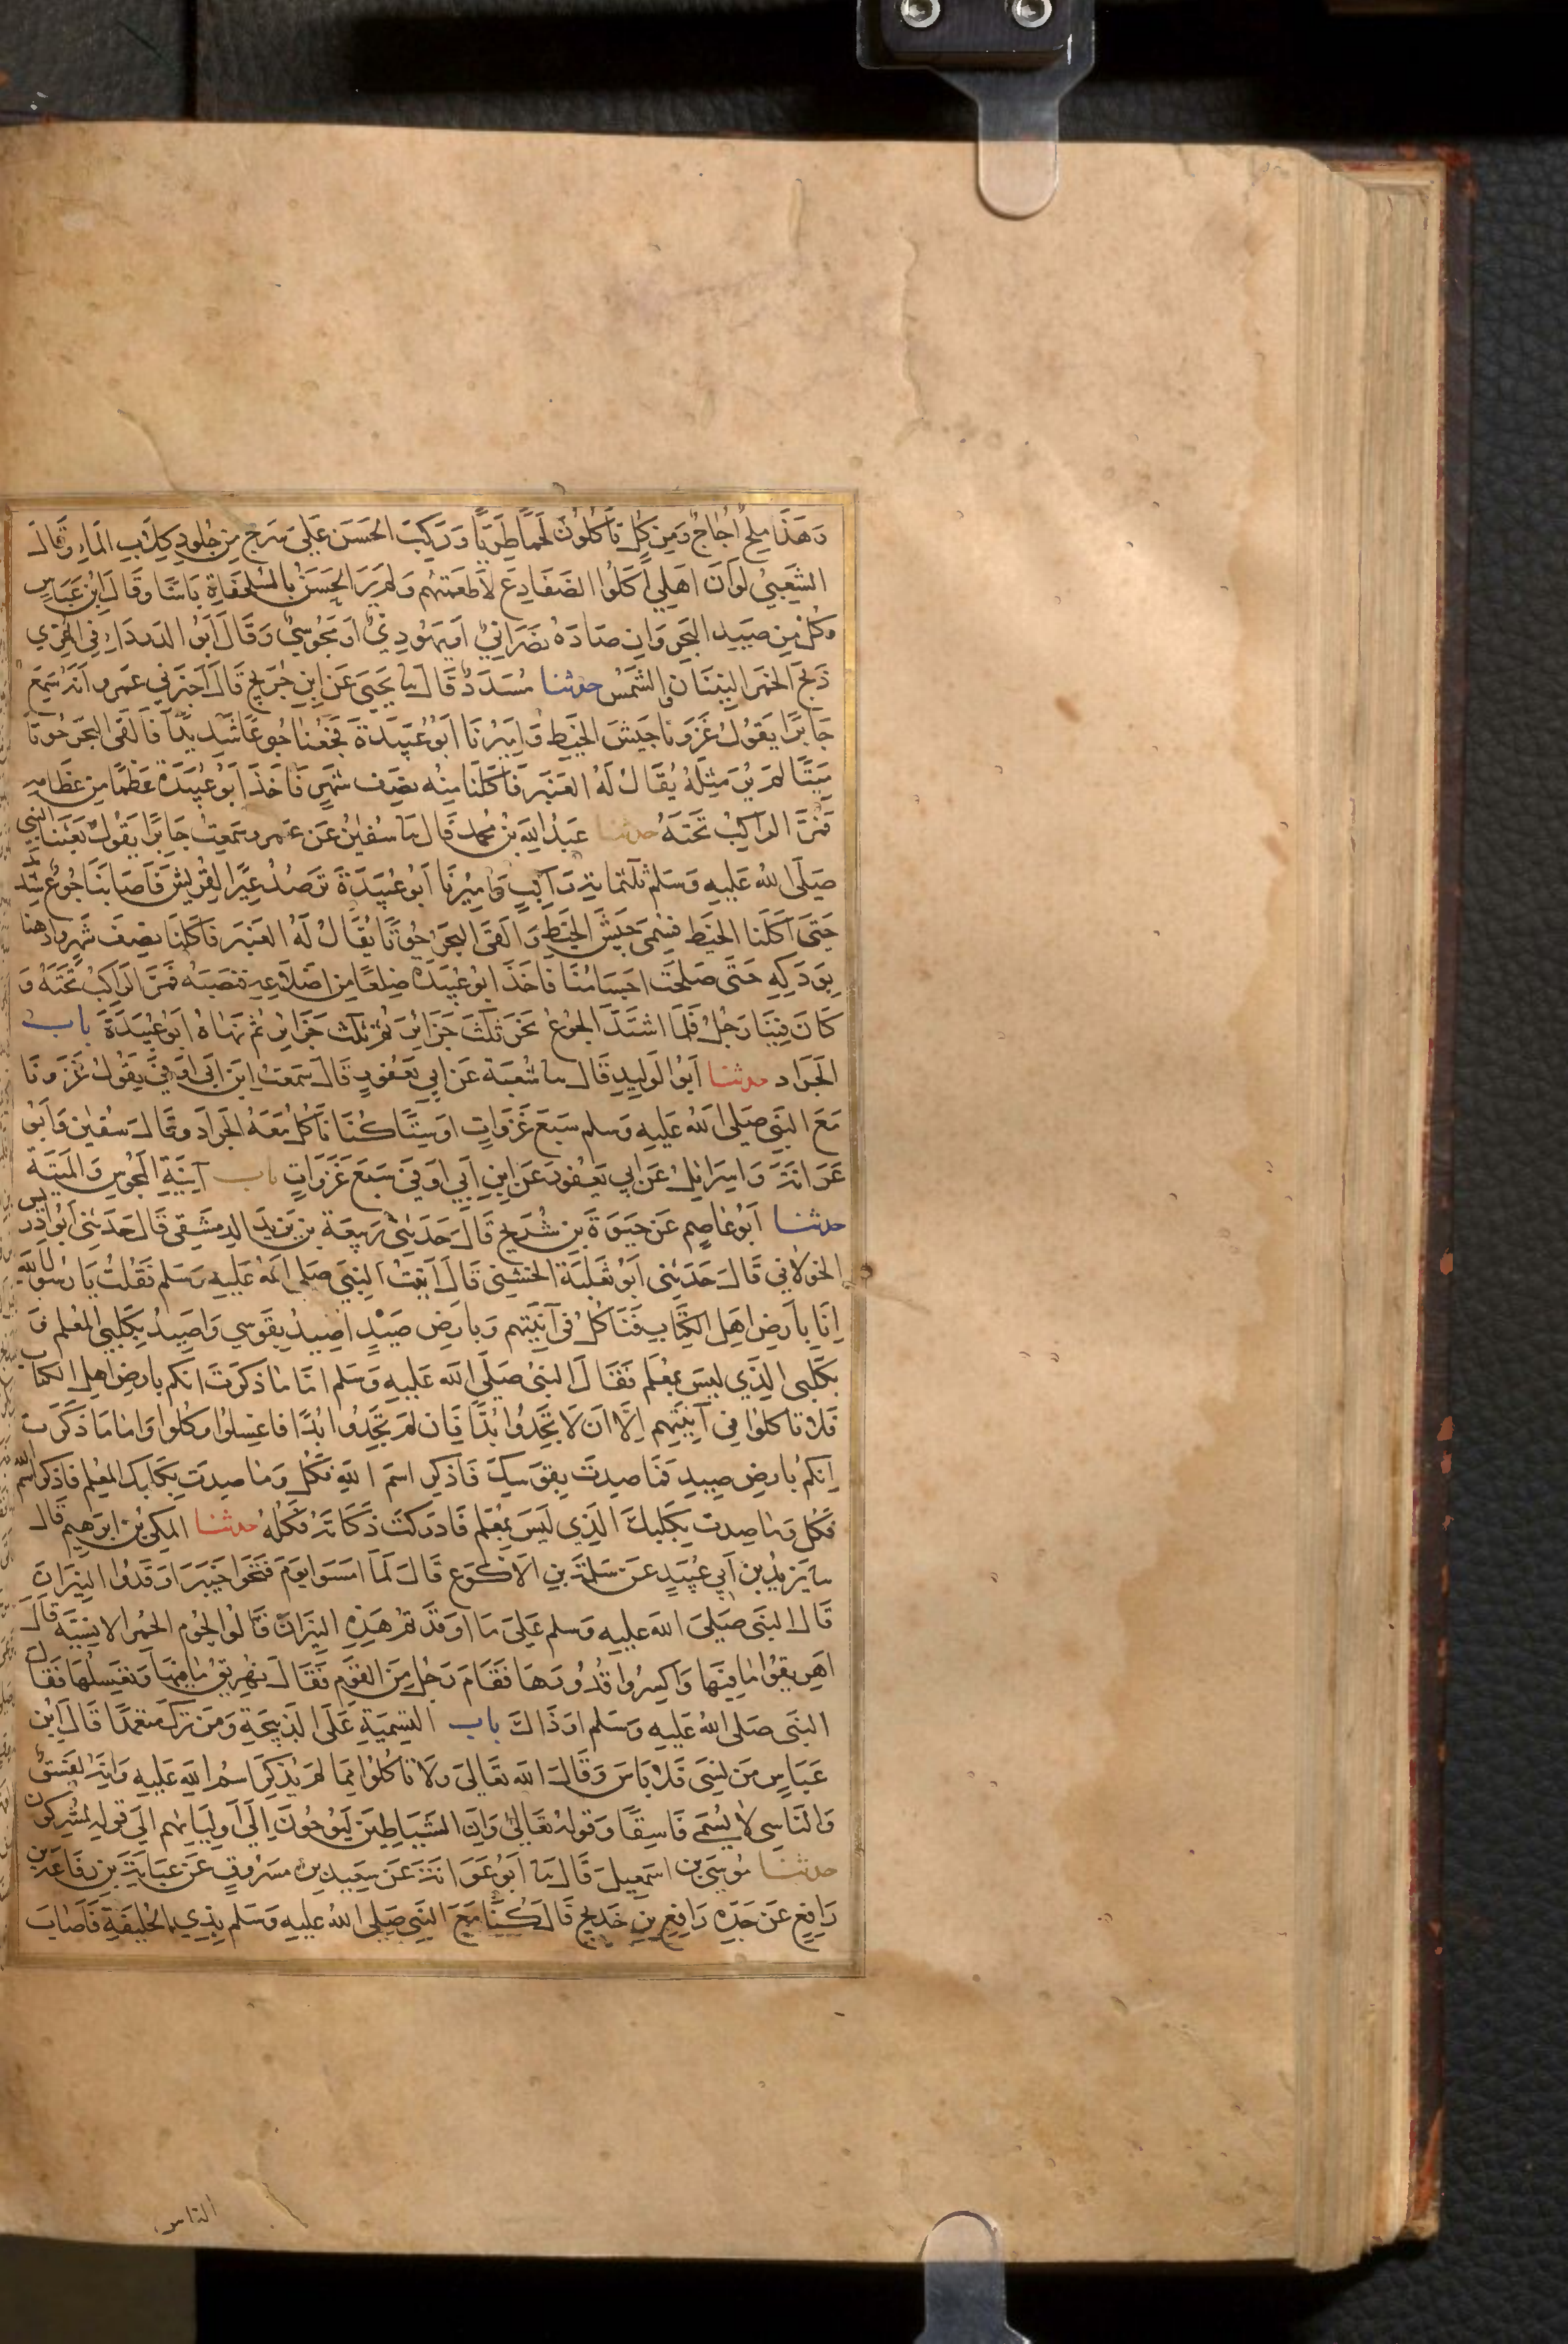 وَهَذَا مِلحٌ أُجَاجٌ وَمِن كُلٍّ تَأكُلُونَ لَحمًا طَرِيًّا وَرَكِبَ الحَسَنُ عَلَى سَرجٍ مِن جُلُودِ كِلَابِ المَاءِ وَقَالَ
الشَعبِيُّ لَو اَنَّ اَهلِي اَكَلُوا الضَفَادِعَ لَاَطعَمتُهُم وَلَم يَرَ الحَسَنُ بِالسُلَحفَاةِ بَاسًا وَقَالَ ابنُ عَبَاسٍ
وَكُل مِن صَيدِ البَحرِ وَاِن صَادَهُ نَصرَانِيٌّ اَو يَهُودِيٌّ اَو مَجُوسِيٌّ وَقَالَ اَبُو الدَردَاءِ فِي المُرِي
ذَبَحَ الخَمرَ النِينَانُ وَالشَمسُ حدثنا مُسَدَدٌ قَالَ ثنا يَحيَى عَن ابنِ جُرَيجٍ قَالَ اَخبَرَنِي عَمرو اَنَهُ سَمِعَ
جَابِرًا يَقُولُ غَزَونَا جَيشَ الخَبَطِ وَاَمِيرُنَا اَبُو عُبَيدَةَ فَجُعنَا جُوعًا شَدِيدًا فَاَلقَى البَحرُ حُوتًا
مَيتًا لَم يُرَ مِثلُهُ يُقَالُ لَهُ العَنبَر فَاَكَلنَا مِنهُ نِصفَ شَهرٍ فَاَخَذَ اَبُو عُبَيدَةَ عَظمًا مِن عِظَامِهِ
فَمَرَّ الرَاكِبُ تَحتَهُ حدثنا عَبدُ اللهِ بنُ مُحمد قَالَ ثنا سُفيٰنُ عَن عَمرو سَمِعتُ جَابِرًا يَقُولُ بَعَثَنَا النبي
صَلَى اللهُ عَليهِ وَسَلم ثَلٰثمائةِ رَاكِبٍ وَاَمِيرُنَا اَبُو عُبَيدَةَ نَرصُدُ عِيرًا لِقُرَيشٍ فَاَصَابَنَا جُوعٌ شَدِيدٌ
حَتَى اَكَلنَا الخَبَط فَسُمِيَ جَيشَ الخَبَطِ وَاَلقَى البَحرُ حُوتًا يُقَالُ لَهُ العَنبَر فَاَكَلنَا نِصفَ شَهرٍ وادهنا
بِوَدَكِهِ حَتَى صَلحَت اَجسَامُنَا فَاَخَذَ اَبُو عُبَيدَةَ ضِلعًا مِن اَضلَاعِهِ فنَصَبَهُ فَمَرَّ الرَاكِبُ تَحتَهُ وَ
كَانَ فِينَا رَجُلٌ فَلَمَا اشتَدَّ الجُوعُ نَحَرَ ثلٰثَ جَزَائِرَ ثُمَّ ثَلٰثَ جَزَائِرَ ثُمَّ نَهَاهُ اَبُو عُبَيدَةَ باب
الجَرَاد حدثنا اَبُو الوَلِيدِ قَالَ ثنا شُعبَة عَن اَبِي يَعفُورٍ قَالَ سَمِعتُ ابنَ اَبِي اَوفَى يَقُولُ غَزَونَا
مَعَ النَبِي صَلَى اللهُ عَليهِ وَسلم سَبعَ غَزَوَاتٍ اَو سِتًّا كُنَا نَاكُلُ مَعَهُ الجَرَاد وَقَالَ سُفيٰن وَاَبُو
عَوَانَةَ وَاِسرَائِيلُ عَن اَبِي يَعفُور عَن ابنِ اَبِي اَوفَى سَبعَ غَزَوَاتٍ باب آنِيَةِ المَجُوسِ وَالمَيتَة
حدثنا اَبُو عَاصِمٍ عَن حَيوَةَ بنِ شُرَيحٍ قَالَ حَدَثَنِي رَبِيعَة بن يَزِيدَ الدِمَشقِي قَالَ حَدَثَنِي اَبُو ادريس
الخَولَانِي قَالَ حَدَثَنِي اَبُو ثَعلَبَة الخُشَنِي قَالَ اَتَيتُ النَبِيَ صَلى اللهُ عَليهِ وَسَلم فَقُلتُ يَا رَسُولَ اللهِ
اِنَا بِاَرضِ اَهلِ الكِتَابِ فَنَاكُلُ فِي آنِيَتِهِم وَبِاَرضِ صَيدٍ اَصِيدُ بِقَوسِي وَاَصِيدُ بِكَلبِي المُعَلَم وَ
بِكَلبِي الَذِي لَيسَ بِمُعَلَم فَقَالَ النَبِيُ صَلَى الله عَليهِ وَسَلم اَمَا مَا ذَكَرتَ اَنَكُم بِاَرضِ اَهلِ الكتاب
فَلَا تَاكُلُوا فِي آنِيَتِهِم اِلَّا اَن لَا تَجِدُوا بُدًّا فَاِن لَم تَجِدُوا بُدًّا فاغسِلُوا وَكُلُوا وَاَمَا مَا ذَكَرتَ
اَنَكُم بِاَرضِ صَيدٍ فَمَا صِدتَ بِقَوسِكَ فَاذكُر اسمَ اللهِ فَكُل وَمَا صِدتَ بِكَلبِكَ المُعَلم فَاذكُر اسمَ الله
فَكُل وَمَا صِدتَ بِكَلبِكَ الَذِي لَيسَ بِمُعَلَم فَادرَكتَ ذَكَاتَهُ فَكُلهُ حدثنا المَكي بن ابرَهيم قَالَ
ثنا يَزِيدُ بن اَبِي عُبَيدٍ عَن سَلَمَةَ بنِ الاَكوَع قَالَ لَمَا اَمسَوا يَومَ فَتَحُوا خَيبَرَ اَوقَدُوا النِيرَانَ
قَالَ النَبِي صَلَى الله عَليهِ وَسلم عَلَى مَا اَوقَدتُم هَذِهِ النِيرَانَ قَالُوا لُحُومِ الحُمُر الاِنسِيَةِ قَالَ
اَهرِيقُوا مَا فِيهَا وَاكسِرُوا قُدُورَهَا فَقَامَ رَجُلٌ مِنَ القَومِ فَقَالَ نُهرِيقُ مَا فِيهَا وَنَغسِلُهَا فَقَالَ
النَبِي صَلى اللهُ عَليهِ وَسَلم اَو ذَاكَ باب التَسمِيَةِ عَلَى الذَبِيحَةِ وَمَن تَرَكَ متَعَمدًا قَالَ ابنُ
عَبَاسٍ مَن نَسِيَ فَلَا بَاسَ وَقَالَ الله تَعَالَى وَلَا تَاكُلُوا مِمَا لَم يُذكَرِ اسمُ اللهِ عَليهِ وَاِنَهُ لَفِسقٌ
وَالنَاسِي لَا يُسَمَى فَاسِقًا وَقَولهُ تَعَالَى وَاِنَ الشَيَاطِينَ لَيُوحُونَ اِلَى اَولِيَائِهِم اِلَى قَولِهِ لمُشرِكُون
حدثنا مُوسَى بن اسمَعِيلَ قَالَ ثنا اَبُو عَوَانَةَ عَن سَعِيدِ بن مَسرُوقٍ عَن عَبَايَةَ بنِ رِفَاعَةَ بن
رَافِعٍ عَن جَدِهِ رَافِعِ بنِ خَدِيجٍ قَالَ كُنَّا مَعَ النَبِي صَلى اللهُ عَليهِ وَسَلم بِذِي الحُلَيفَةِ فَاَصَابَ
الناس